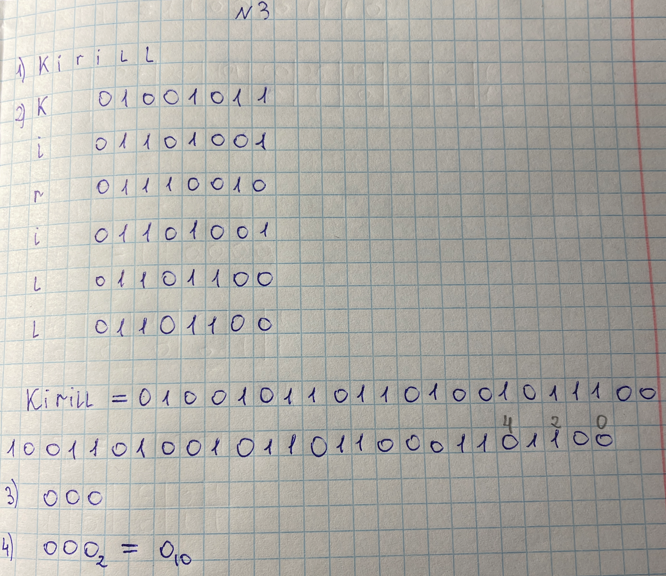 N3
1) Kirill
2) K 01001011
i 01101001
r 01110010
i 01101001
l 01101100
l 01101100
Kirill = 0100101101101001011100
4 2 0
10011010010110110001101100
3) 000
4) 000₂ = 0₁₀